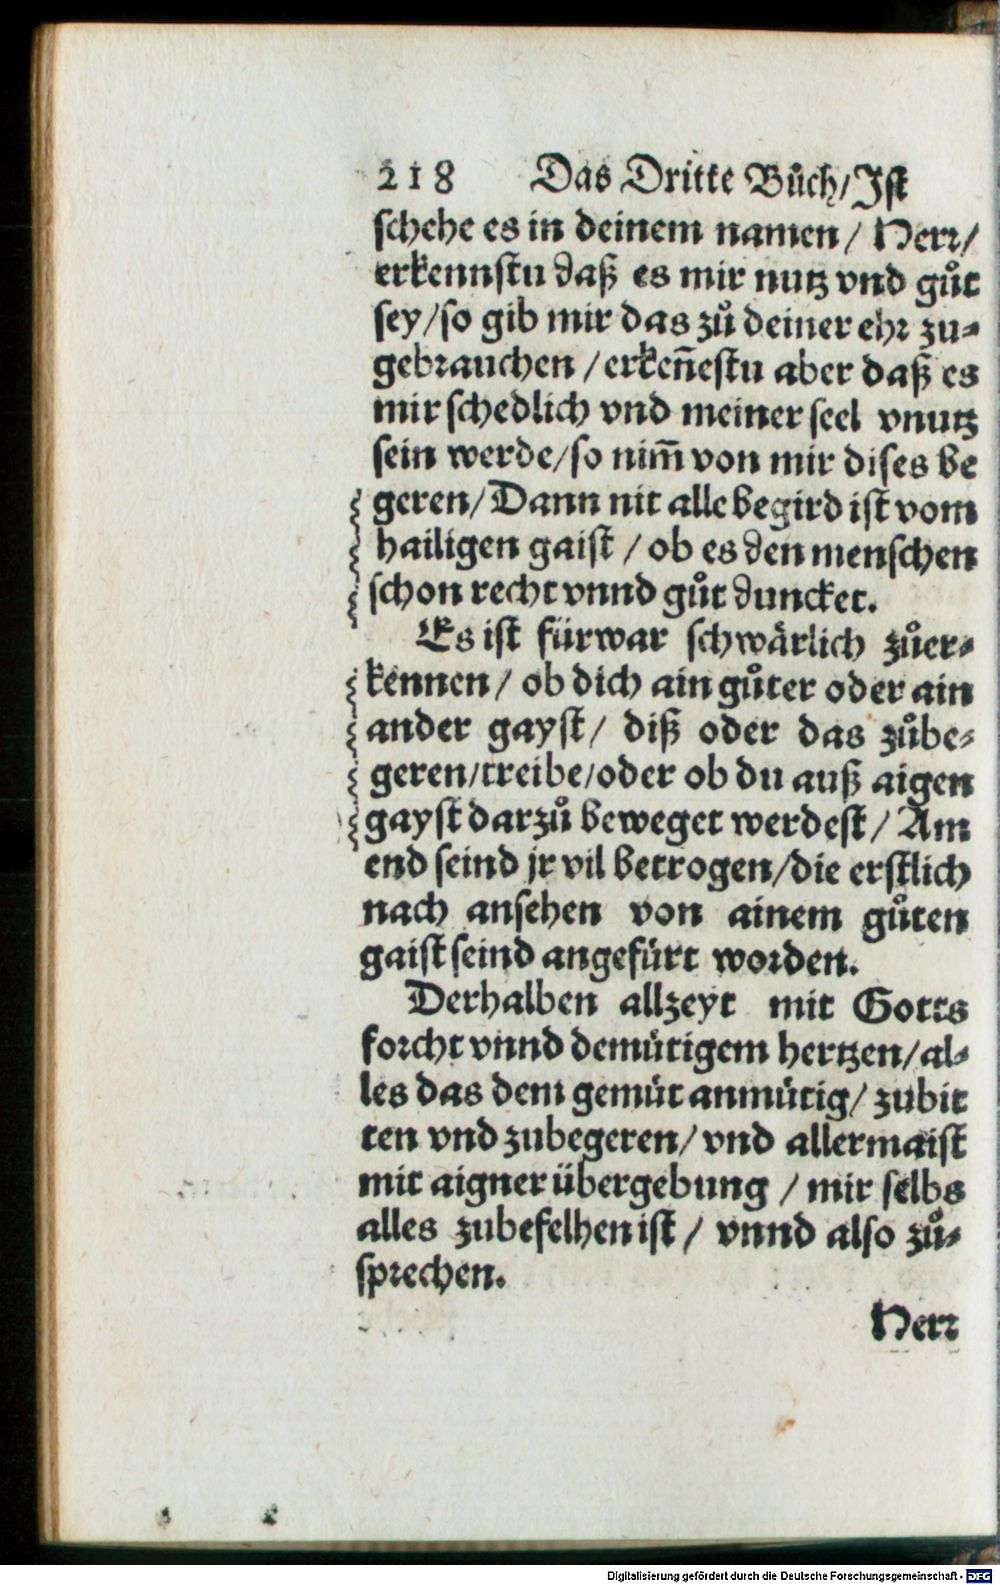 218 Das Dritte Bůch/Ist
schehe es in deinem namen/ Herr/
erkennstu daß es mir nutz vnd gůt
sey/so gib mir das zů deiner ehr zu-
gebrauchen/erkeñestu aber daß es
mir schedlich vnd meiner seel vnutz
sein werde/so nim̃ von mir dises be
geren/Dann nit alle begird ist vom
hailigen gaist/ob es den menschen
schon recht vnnd gůt duncket.
Es ist fürwar schwärlich zůer-
kennen/ ob dich ain gůter oder ain
ander gayst/ diß oder das zůbe-
geren/treibe/oder ob du auß aigen
gayst darzů beweget werdest/ Am
end seind jr vil betrogen/die erstlich
nach ansehen von ainem gůten
gaist seind angefürt worden.
Derhalben allzeyt mit Gotts
forcht vnnd demütigem hertzen/al-
les das dem gemüt anmütig/ zubit
ten vnd zubegeren/ vnd allermaist
mit aigner übergebung/mir selbs
alles zubefelhen ist/ vnnd also zů-
sprechen.
Herr
Digitalisierung gefördert durch die Deutsche Forschungsgemeinschaft - DFG